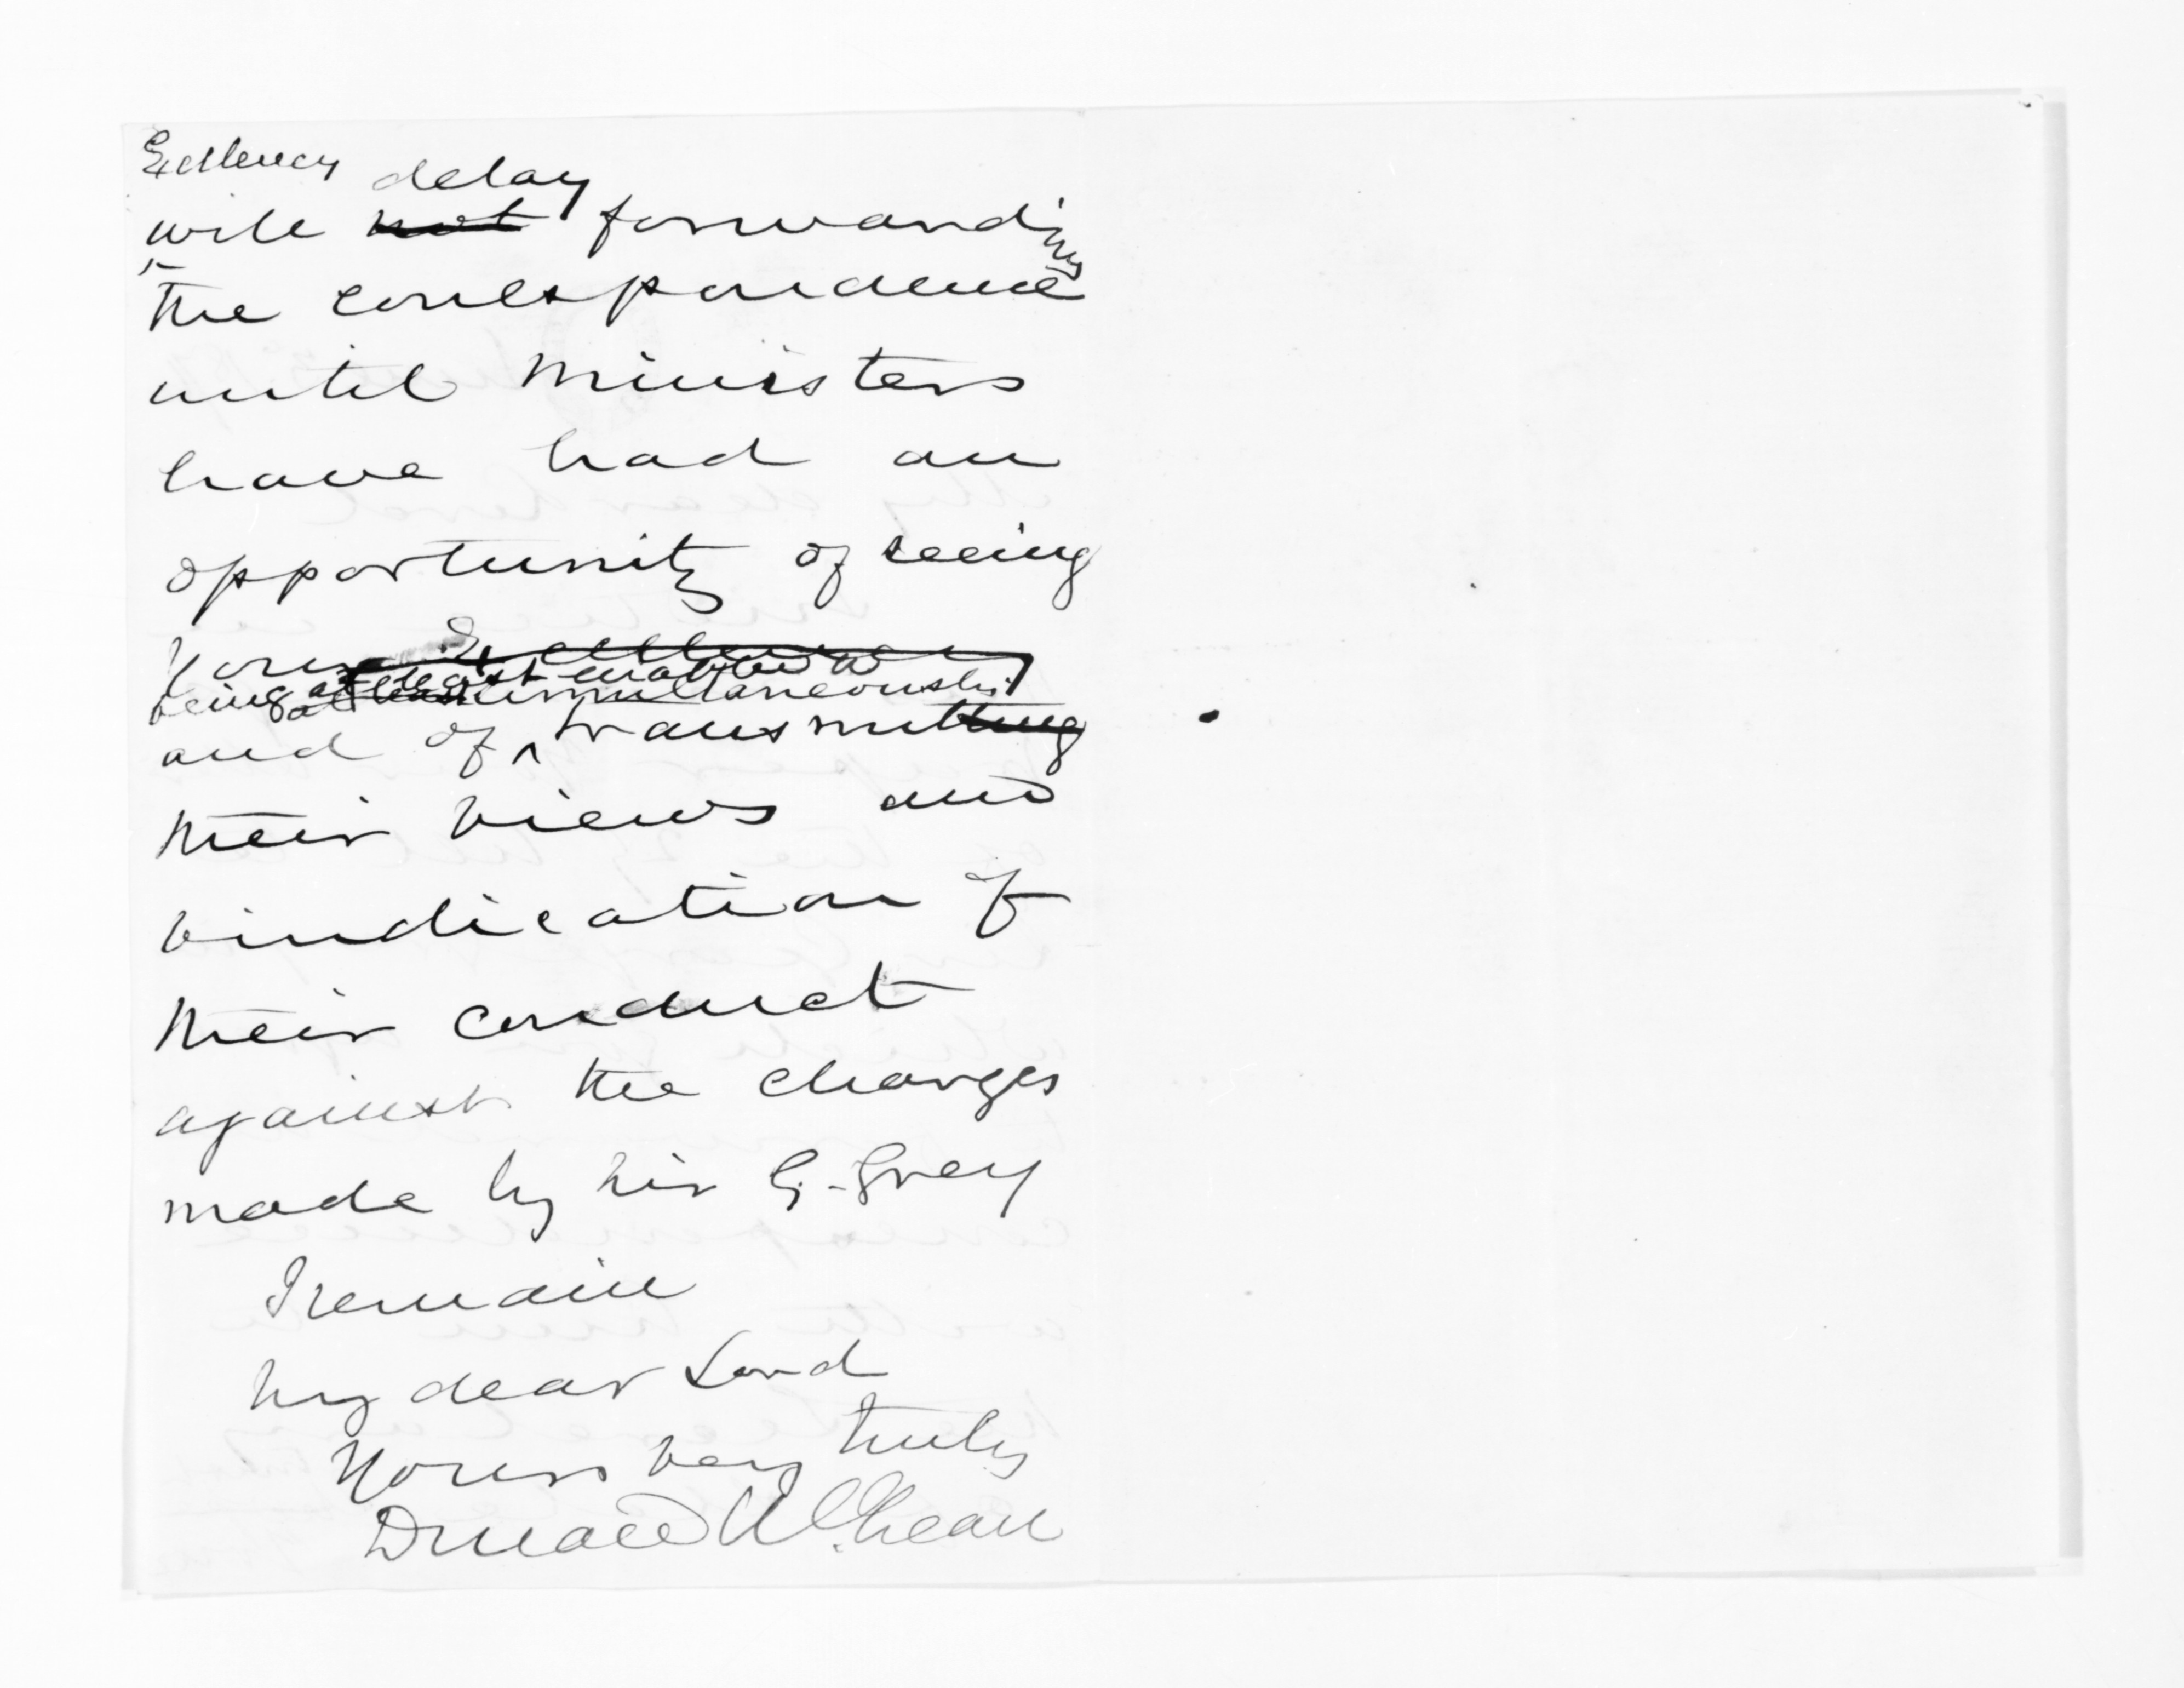 Excellency delay
will not forwarding
the correspondence
until Ministers
have had an
opportunity of seeing
your Excellency
being at least enabled to
simultaneously
and of transmitting
their views and
vindication of
their conduct
against the charges
made by Sir G. Grey
I remain
My dear Lord
Yours very truly
Donald McLean